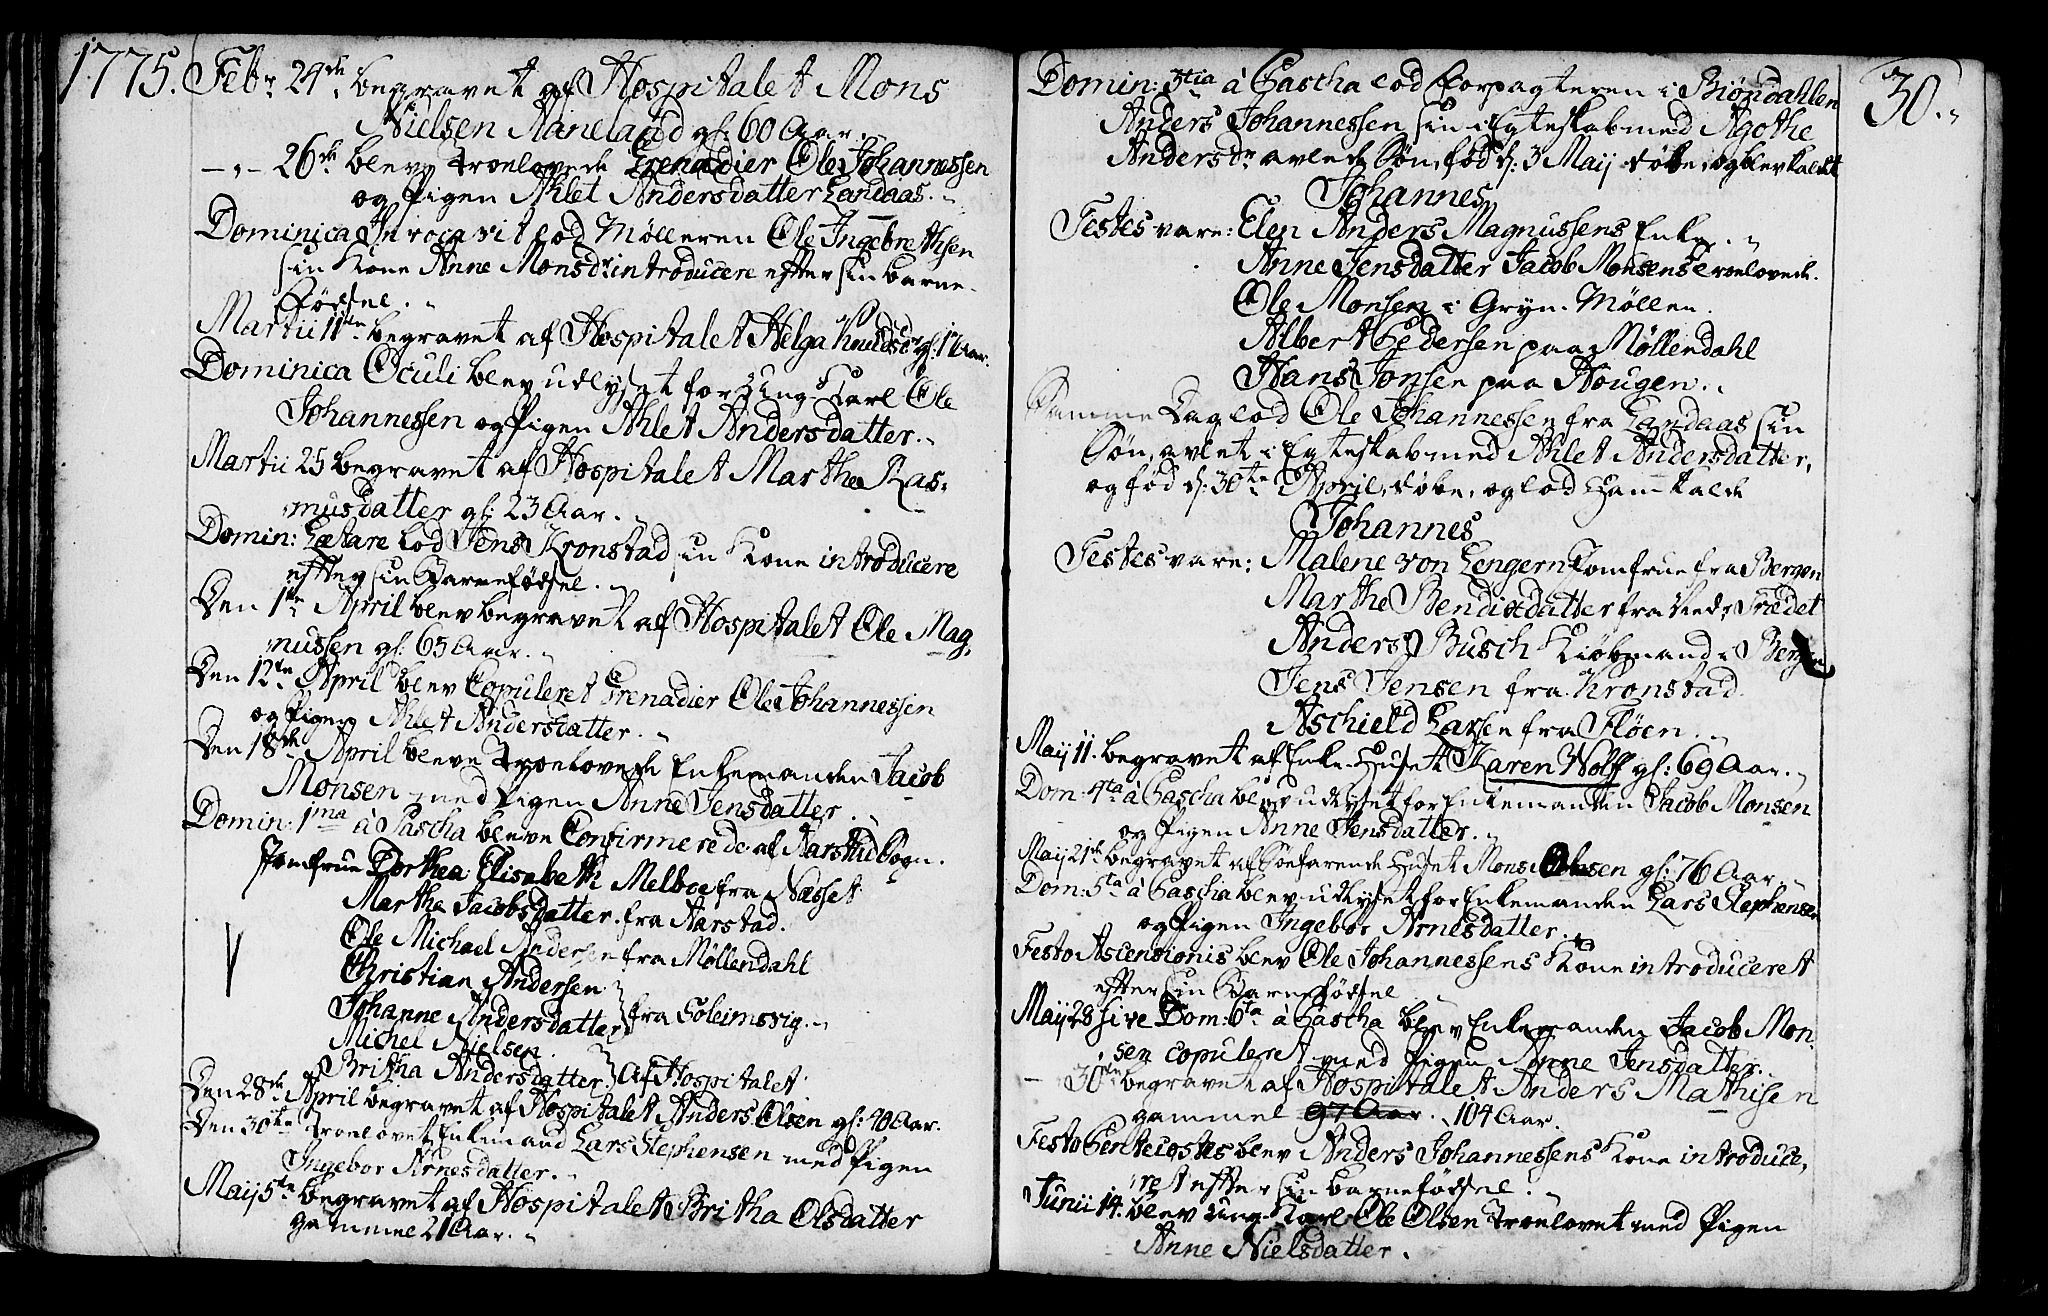 1775. Febr 24de begravet af Hospitalet Mons
Nielsen Naneland gl: 60 Aar.
- " - 26de bleve Troelovede Grenadier Ole Johannessen
og Pigen Ahlet Andersdatter Landaas.
Dominica Invocavit lod Mølleren Ole Ingebrethsen
sin Kone Anne Monsdr introducere efter sin Barne-
fødsel.
Martii 11te begravet af Hospitalet Helga Knudsdr gl: Aar.
Dominica Oculi blev udlyset for Ung Karl Ole
Johannessen og Pigen Ahlet Andersdatter.
Martii 25 begravet af Hospitalet Marthe Ras-
musdatter gl: 23 Aar.
Domin: Lætare lod Jens Kronstad sin Kone introducere
efter sin Barnefødsel.
Den 1te April blev begravet af Hospitalet Ole Mag-
nussen gl: 65 Aar.
Den 12te April blev Copuleret Grenadier Ole Johannessen
og Pigen Ahlet Andersdatter.
Den 18de April bleve Troelovede Enkemanden Jacob
Monsen med Pigen Anne Jensdatter.
Domin: 1ma à Pascha bleve Confirmerede af Aarstad Sogn.
Jomfrue Dorthea Elisabeth Melboe fra Næsset
Marthe Jacobsdatter fra Aarstad.
Ole Michael Andersen fra Møllendahl
Christian Andersen
Johanne Andersdatter } fra Soleimsvig.
Michel Nielsen
Britha Andersdatter } Af Hospitalet
Den 28de April begravet af Hospitalet Anders Olsen gl: 70 Aar.
Den 30te Troelovet Enkemand Lars Stephensen med Pigen
Ingebor Arnesdatter.
Maij 5te begravet af Hospitalet Britha Olsdatter
gammel 21 Aar.
30.
Domin: 3tia à Pascha lod Forpagteren i Biøndahlen
Anders Johannessen sin i Egteskab med Agothe
Andersdr avlede Søn, fød d: 3 Maij døbe, og blev kaldt
Johannes
Testes vare: Elen Anders Magnussens Enke.
Anne Jensdatter Jacob Monsens troelovede.
Ole Monsen i Gryn-Møllen.
Albert Pedersen paa Møllendahl
Hans Jonsen paa Hougen.
Samme Dag lod Ole Johannessen fra Landaas sin
Søn, avlet i Egteskab med Ahlet Andersdatter,
og fød d: 30te April, døbe, og lod ham kalde
Johannes
Testes vare: Malene von Lengern Jomfrue fra Bergen
Marthe Bendixdatter fra Trædet
Anders Busch Kiøbmand i Bergen
Jens Jensen fra Kronstad.
Aschield Larsen fra Fløen.
Maij 11. begravet af Enke-Huset Karen Wolff gl: 69 Aar.
Dom: 4ta à Pascha blev udlyset for Enkemanden Jacob Monsen
og Pigen Anne Jensdatter.
Maij 21de begravet af Søefarende Huset Mons Olsen gl: 76 Aar.
Dom: 5ta à Pascha blev udlyset for Enkemanden Lars Stephensen
og Pigen Ingebor Arnesdatter.
Festo Ascensionis blev Ole Johannessens Kone introduceret
efter sin Barnefødsel
Maij 28 sive Dom: 6ta à Pascha blev Enkemanden Jacob Mon-
sen copuleret med Pigen Anne Jensdatter.
- 30te begravet af Hospitalet Anders Mathisen
gammel 97 Aar. 104 Aar.
Festo Pentecostes blev Anders Johannessens Kone introduce-
ret efter sin Barnefødsel.
Junii 14. blev Ung Karl Ole Olsen Troelovet med Pigen
Anne Nielsdatter.